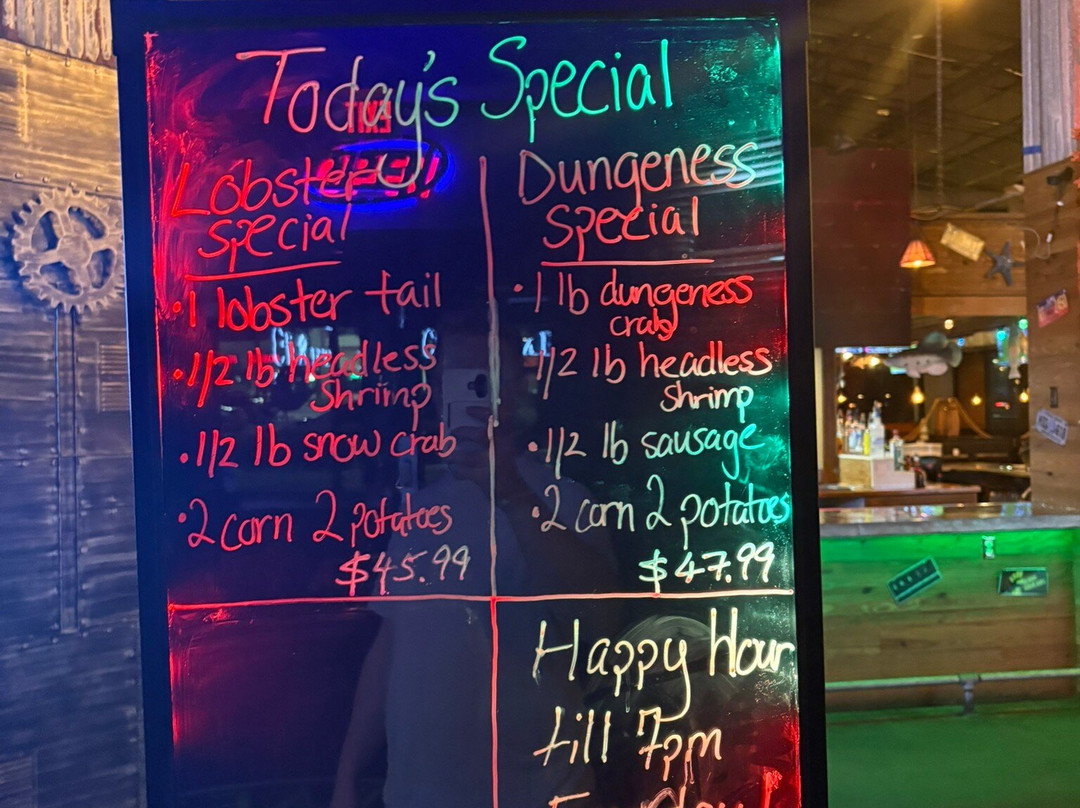 Today's Special
Lobster
special
• 1 lobster tail
• 1/2 lb headless
shrimp
• 1/2 lb snow crab
• 2 corn 2 potatoes
$45.99
Dungeness
special
• 1 lb dungeness
crab
1/2 lb headless
shrimp
• 1/2 lb sausage
• 2 corn 2 potatoes
$47.99
Happy Hour
till 7pm